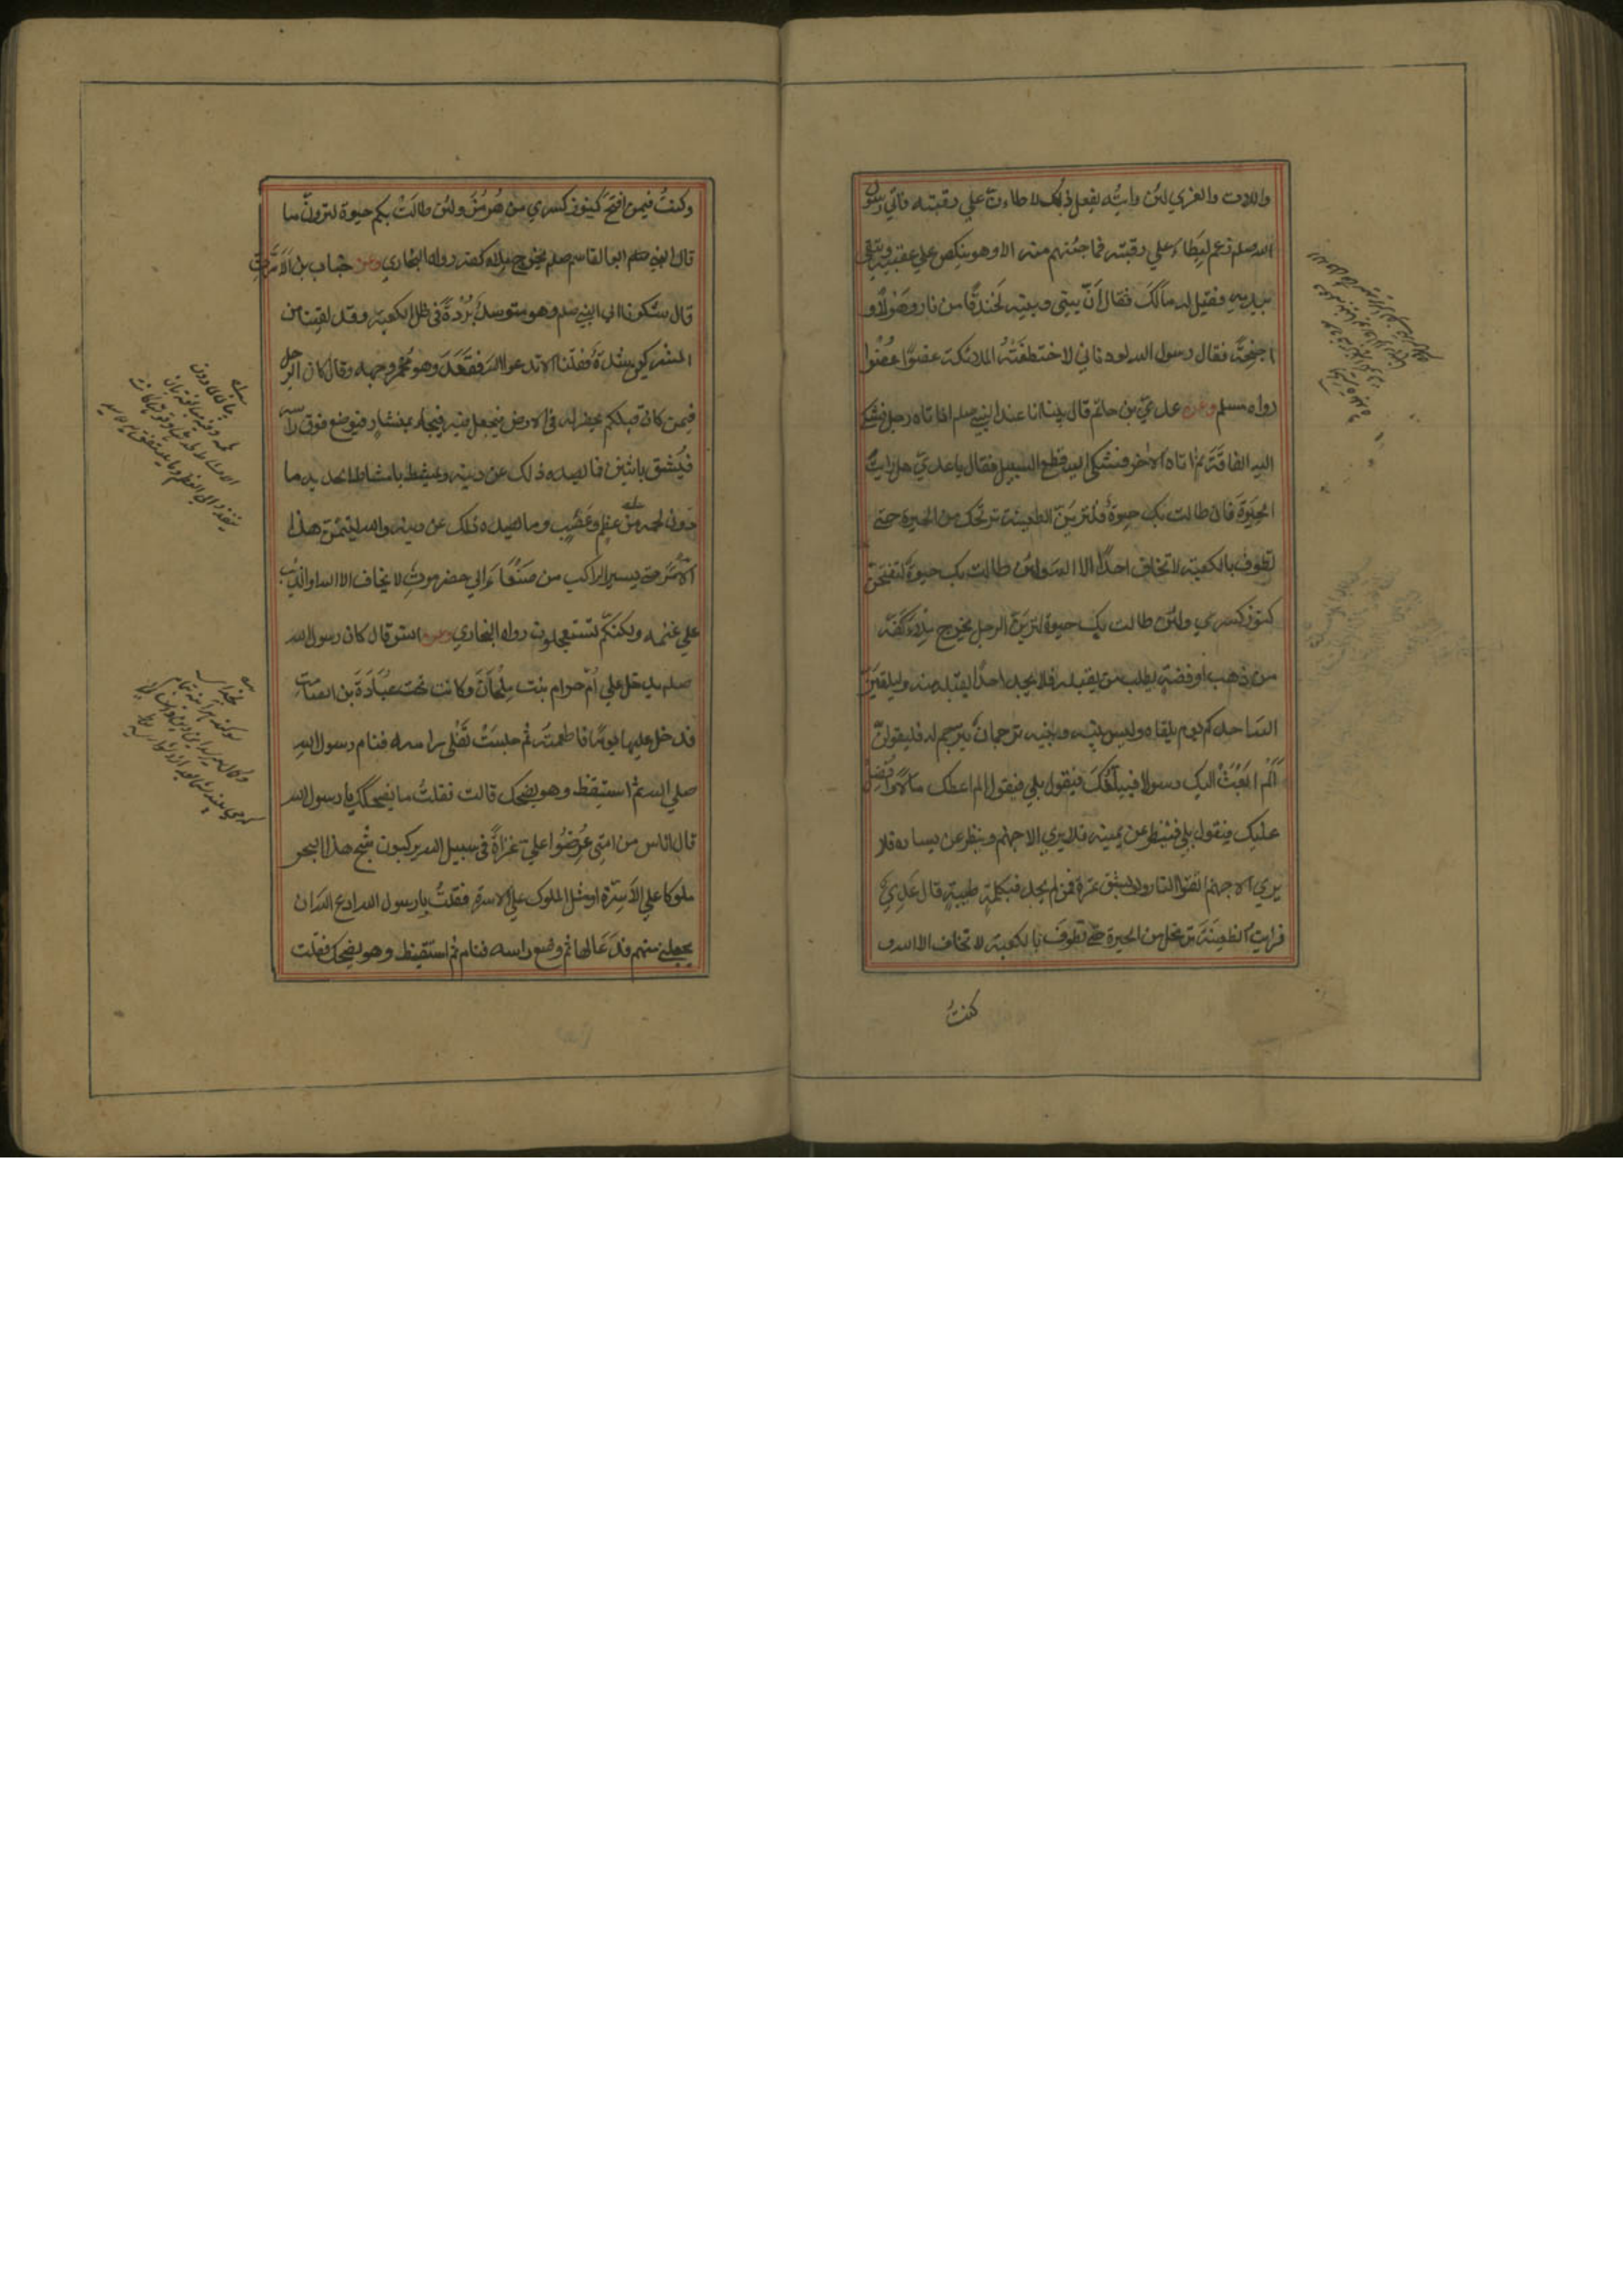 واللات والعزي لئن رايته يفعل ذلك لاطاءن علي رقبته فاتي رسول
الله صلم زعم ليطاء علي رقبته فما فجئهم منه الا وهو ينكص علي عقبيه ويتقي
بيديه فقيل له مالك فقال ان بيني وبينه لخندقا من نار وهولا و
اجنحة فقال رسول الله لو دنا مني لاختطفته الملائكة عضوا عضوا
رواه مسلم وعن عدي بن حاتم قال بينا انا عند النبي صلم اذ اتاه رجل فشكي
اليه الفاقة ثم اتاه الاخر فشكي اليه قطع السبيل فقال يا عدي هل رايت
الحيرة فان طالت بك حيوة فلترين الظعينة ترتحل من الحيرة حتي
تطوف بالكعبة لا تخاف احدا الا الله ولئن طالت بك حيوة لتفتحن
كنوز كسري ولئن طالت بك حيوة لترين الرجل يخرج ملاء كفه
من ذهب او فضة يطلب من يقبله فلا يجد احدا يقبله منه وليلقين
الله احدكم يوم يلقاه وليس بينه وبينه ترجمان يترجم له فليقولن
الم ابعث اليك رسولا فيبلغك فيقول بلي فيقول الم اعطك مالا وافضل
عليك فيقول بلي فينظر عن يمينه فلا يري الا جهنم وينظر عن يساره فلا
يري الا جهنم اتقوا النار ولو بشق تمرة فمن لم يجد فبكلمة طيبة قال عدي
فرايت الظعينة ترتحل من الحيرة حتي تطوف بالكعبة لا تخاف الا الله و
كنت
وكنت فيمن افتتح كنوز كسري من هرمز ولئن طالت بكم حيوة لترون ما
قال النبي صلم ابو القاسم صلم يخرج ملاء كفه رواه البخاري وعن خباب بن الارت
قال شكونا الي النبي صلم وهو متوسد بردة في ظل الكعبة وقد لقينا من
المشركين شدة فقلنا الا تدعو الله فقعد وهو محمر وجهه وقال كان الرجل
فيمن كان قبلكم يحفر له في الارض فيجعل فيه فيجاء بمنشار فيوضع فوق راسه
فيشق باثنين فما يصده ذلك عن دينه ويمشط بامشاط الحديد ما
دون لحمه من عظم وعصب وما يصده ذلك عن دينه والله ليتمن هذا
الامر حتي يسير الراكب من صنعاء الي حضرموت لا يخاف الا الله او الذئب
علي غنمه ولكنكم تستعجلون رواه البخاري وعن انس قال كان رسول الله
صلم يدخل علي ام حرام بنت ملحان وكانت تحت عبادة بن الصامت
فدخل عليها يوما فاطعمته ثم جلست تفلي راسه فنام رسول الله
صلي الله ثم استيقظ وهو يضحك قالت فقلت ما يضحكك يا رسول الله
قال اناس من امتي عرضوا علي غزاة في سبيل الله يركبون ثبج هذا البحر
ملوكا علي الاسرة او مثل الملوك علي الاسرة فقلت يا رسول الله ادع الله ان
يجعلني منهم فدعا لها ثم وضع راسه فنام ثم استيقظ وهو يضحك فقلت